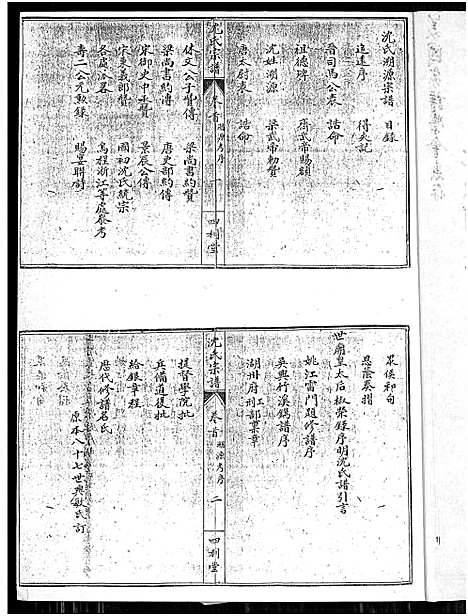 沈氏溯源宗譜 目錄
追遠序 得夫記
晉司馬公表 誥命
祖德碑 齊武帝賜額
沈姓溯源 梁武帝勅贊
唐太尉表 誥命
沈氏宗譜 卷首 一 四利堂
休文公子贊傳 梁尚書約贊
梁尚書約傳 唐史部約傳
宋御史中丞贊 景辰公傳
宋隶義郎贊 國初沈氏統宗
各處派名 烏程浙江等處叅考
壽二公元勲錄 賜宴聯對
眾侯和句
恩蔭奏摺
世廟皇太后椒榮錄序明沈氏譜引言
姚江雷門題修譜序
吳興竹溪鐫譜序
湖州府江刑部稟章
沈氏宗譜 卷首 二 四利堂
提督學院批
兵備道復批
給銀章程
歷代修譜名氏
原本八十七世典敏氏訂